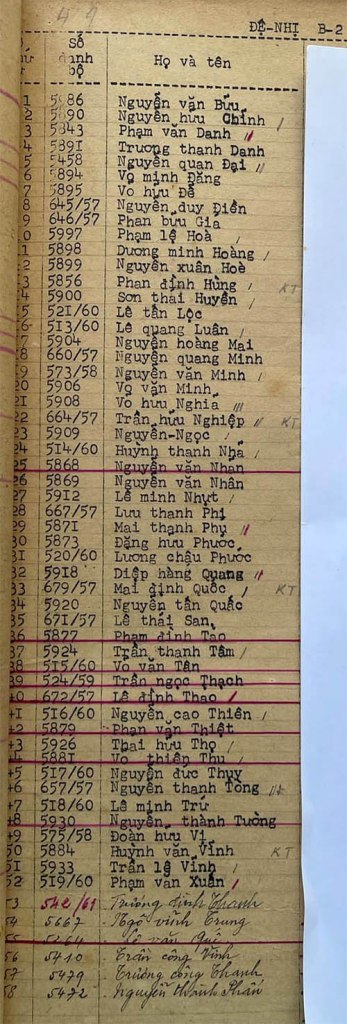 49
ĐỆ-NHỊ B-2
Số danh bộ Họ và tên
1 5886 Nguyễn văn Bửu
2 5890 Nguyễn hưu Chỉnh /
3 5843 Phạm văn Danh //
4 589I Trương thanh Danh
5 5458 Nguyễn quan Đại //
6 5894 Vọ minh Đăng
7 5895 Vo hưu Để
8 645/57 Nguyễn duy Điền
9 646/57 Phan bưu Gia
0 5997 Phạm lệ Hoà /
1 5898 Dương minh Hoàng /
2 5899 Nguyễn xuân Hoè
3 5856 Phan đình Hùng / KT
4 5900 Sơn thai Huyền /
5 52I/60 Lê tấn Lộc
6 5I3/60 Lê quang Luân /
7 5904 Nguyễn hoàng Mai
8 660/57 Nguyễn quang Minh
9 573/58 Nguyễn văn Minh /
20 5906 Vọ văn Minh
2I 5908 Vo hưu Nghĩa ///
22 664/57 Trần hưu Nghiệp // KT
23 5909 Nguyễn-Ngọc /
24 5I4/60 Huỳnh thanh Nhả /
25 5868 Nguyễn văn Nhan
26 5869 Nguyễn văn Nhân
27 59I2 Lê minh Nhựt /
28 667/57 Lưu thanh Phi
29 587I Mai thanh Phụ //
30 5873 Đặng hưu Phước
3I 520/60 Lương chậu Phước
32 59I8 Diệp hàng Quang //
33 679/57 Mai định Quốc / KT
34 5920 Nguyễn tấn Quốc
35 67I/57 Lê thái San
36 5877 Phạm đình Tao
37 5924 Trần thanh Tâm /
38 5I5/60 Vo văn Tân
39 524/59 Trần ngọc Thạch
40 672/57 Lê đình Thao /
4I 5I6/60 Nguyễn cao Thiên /
42 5879 Phan văn Thiệt
43 5926 Thai hưu Thọ /
44 588I Vo thiên Thu /
45 5I7/60 Nguyễn đưc Thuy
46 657/57 Nguyễn thanh Tòng
47 5I8/60 Lê minh Trứ
48 5930 Nguyễn thành Tường
49 575/58 Đoàn hưu Vị
50 5884 Huỳnh văn Vinh KT
5I 5933 Trần lê Vinh /
52 5I9/60 Phạm văn Xuân /
53 542/61 Trương đình Thanh
54 5667 Ngô vĩnh Trung
55
56 5410 Trần công Vinh
57 5479 Trương công Thanh
58 5472 Nguyễn thành Phấn